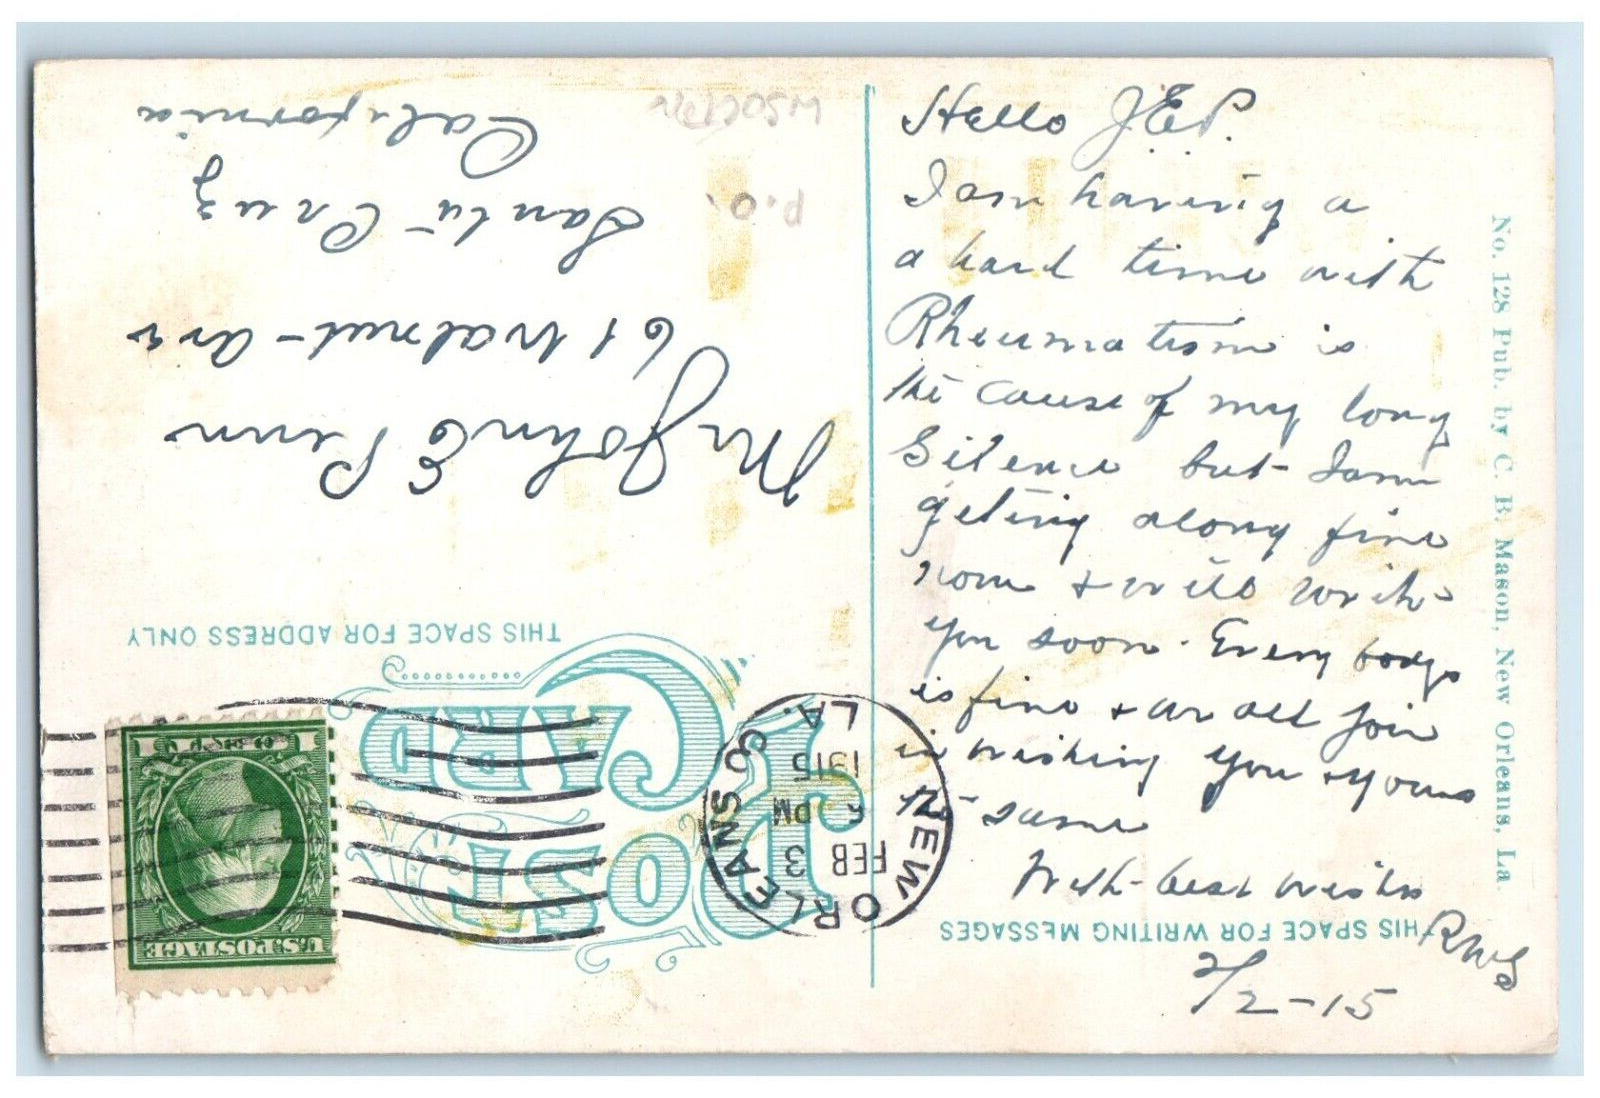 Hello J.E.P.
I am having a
a hard time with
Rheumatism is
the cause of my long
Silence but I am
geting along fine
now & will write
you soon. Every bodys
is fine & we all join
in wishing you & yours
the same
With best wishes
RWS
2/2-15
No. 128 Pub. by C. B. Mason, New Orleans, La.
THIS SPACE FOR WRITING MESSAGES
POST CARD
THIS SPACE FOR ADDRESS ONLY
NEW ORLEANS
LA.
FEB 3
6 PM
1915
U.S. POSTAGE
1 CENT 1
Mr John E Penn
61 Walnut Ave
Santa Cruz
California
P.O.